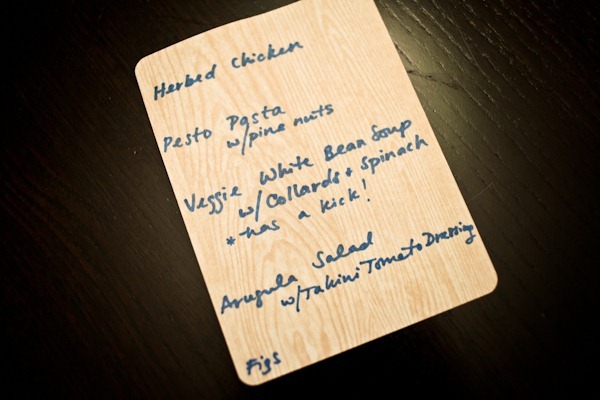 Herbed Chicken
Pesto Pasta
w/pine nuts
Veggie White Bean Soup
w/Collards + Spinach
*has a kick!
Arugula Salad
w/Tahini Tomato Dressing
Figs